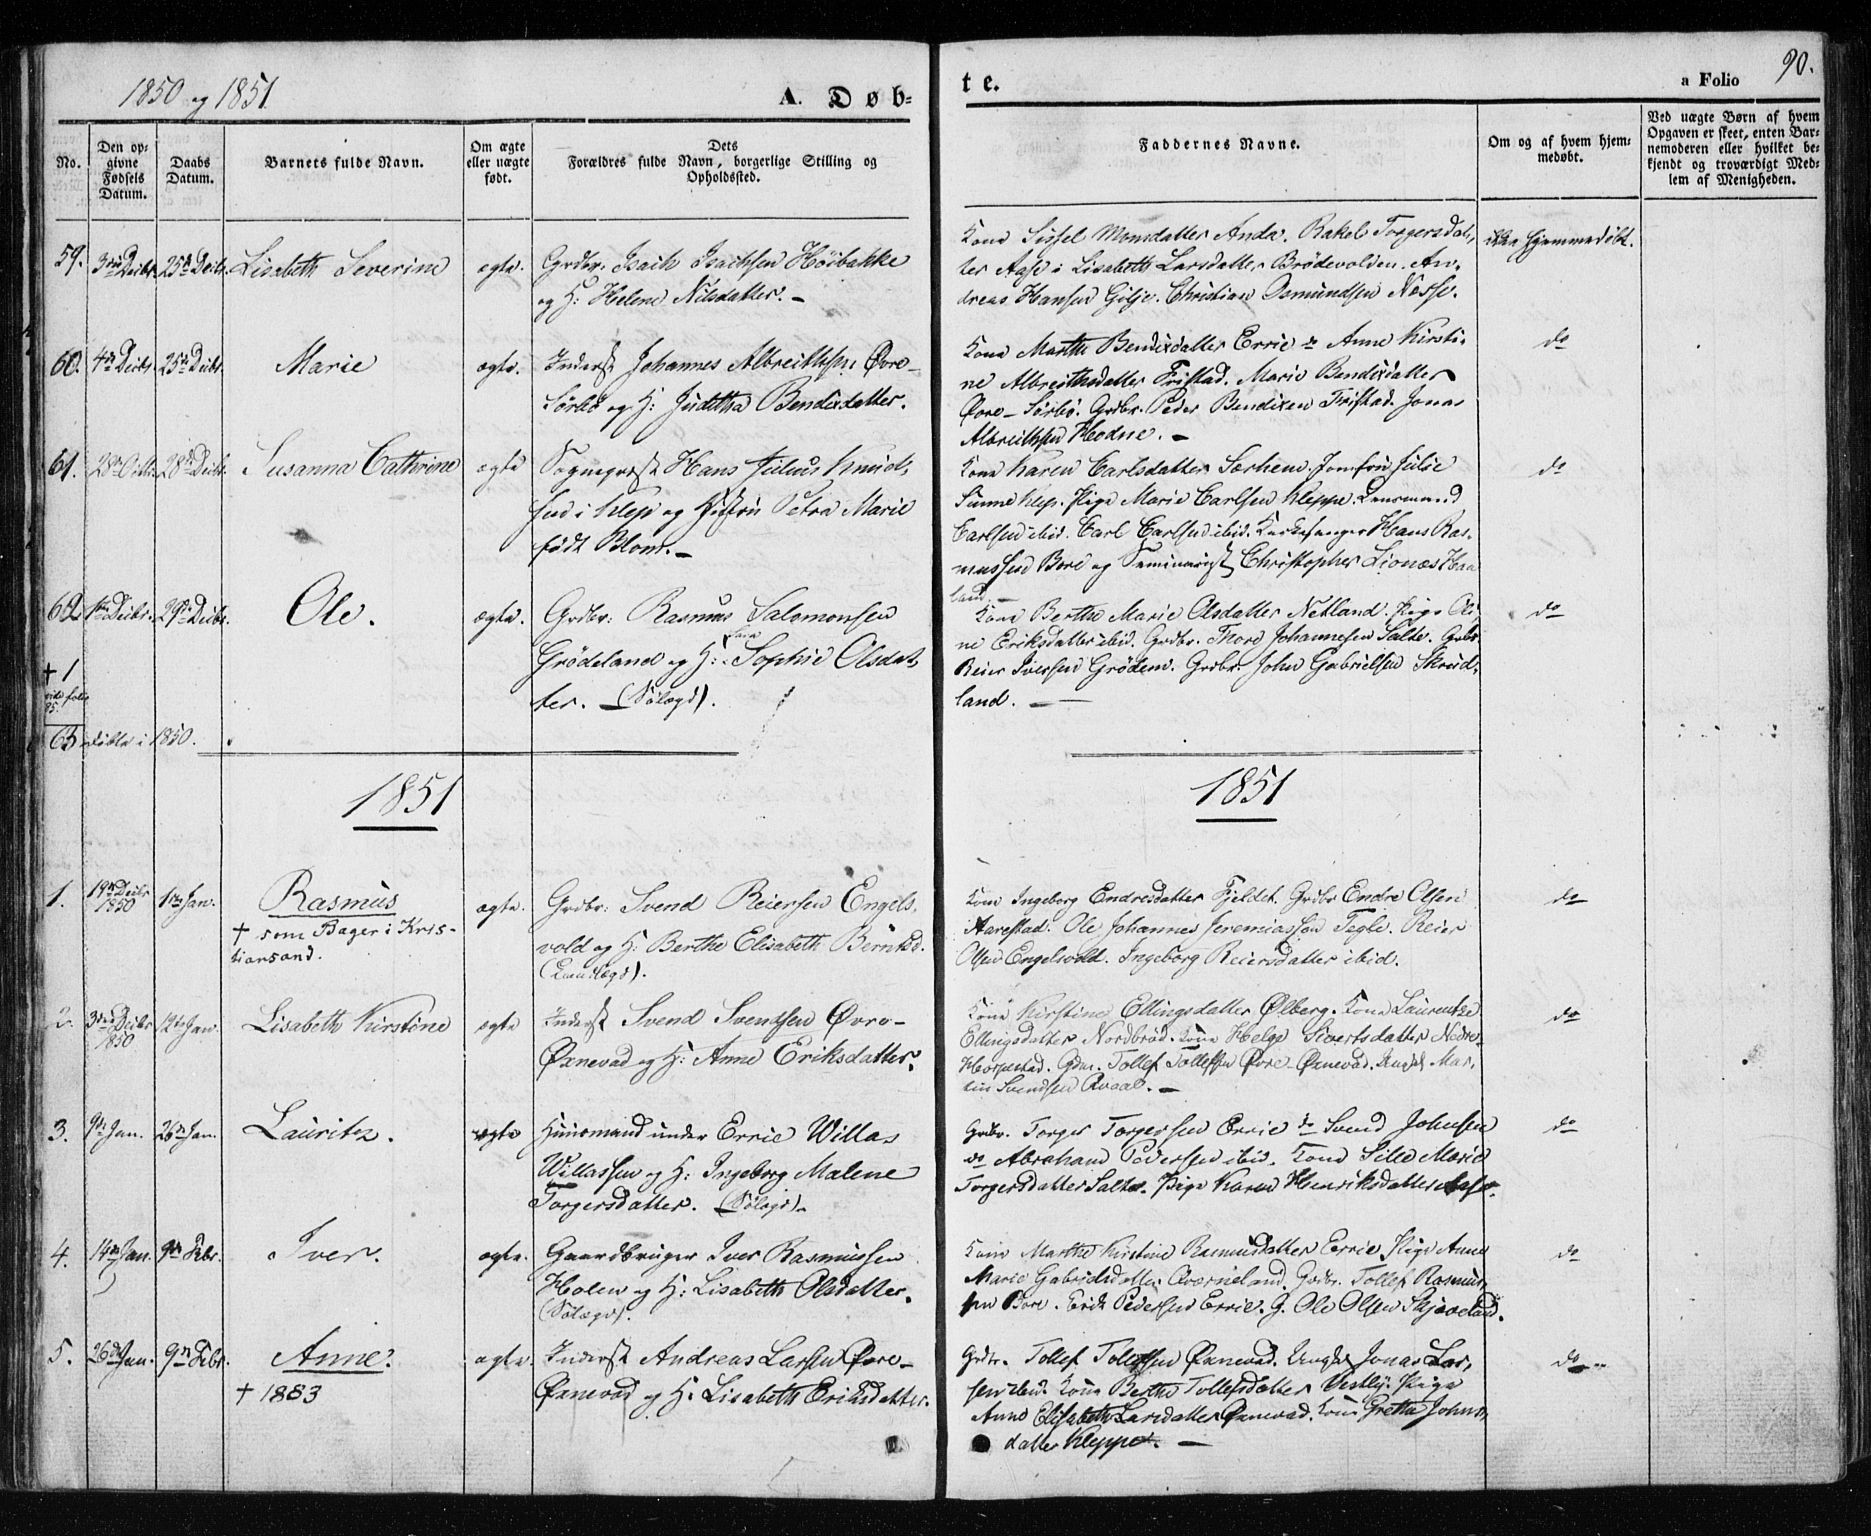 1850 og 1851
A. Døb-
te.
a Folio 90.
No.
Den op-
givne
Fødsels
Datum.
Daabs
Datum.
Barnets fulde Navn.
Om ægte
eller uægte
født.
Dets
Forældres fulde Navn, borgerlige Stilling og
Opholdssted.
Faddernes Navne.
Om og af hvem hjem-
medøbt.
Ved uægte Børn af hvem
Opgaven er skeet, enten Bar-
nemoderen eller hvilket be-
kjendt og troværdigt Med-
lem af Menigheden.
59. 3die Decbr. 25de Decbr. Lisabeth Severine ægte. Grdbr. Isach Isachsen Höibakke
og H: Helene Nilsdatter. –
Kone Sissel Monsdatter Anda. Rakel Torgersdat,
ter Aase i Lisabeth Larsdatter Brödevolden. An,
dreas Hansen Gilje. Christian Osmundsen Næsse.
ikke hjemmedöbt.
60. 4de Decbr. 25de Decbr. Marie ægte. Inderst Johannes Albreithsen Øvre-
Sörbö og H: Juditha Bendixdatter.
Kone Marthe Bendixdatter Errie do Anne Kirsti-
ne Albreithsdatter Fristad. Marie Bendixdatter
Øvre-Sörbö. Grdbr. Peder Bendixen Fristad. Jonas
Albreithsen Hodne. –
do
61. 28de 28de Decbr. Susanna Cathrine ægte Sognepræst Hans Julius Knud,
i Klep og Hustru Petra Marie
födt Blom. –
Kone Karen Carlsdatter Særheim. Jomfru Julie
Klep. Pige Marie Carlsen Kleppe. Lensmand
Carlsen ibid. Carl Carlsen ibid. Kirkesanger Hans Ras-
mussen Bore og Seminarist Christopher Lionæs Haa
land. –
do
62. Decbr. 29de Decbr. Ole. ægte. Grdbr. Rasmus Salomonsen
Grödeland og H: Sophie Olsdat,
ter. – (Sölagd).
Kone Berthe Marie Olsdatter Netland. Pige Oli,
ne Eriksdatter ibid. Grdbr. Thore Johannesen Salte. Grbr
Reier Iversen Grödem. Grdbr. John Gabrielsen Skred,
land. –
do
+ 1
vide folio
85.
63 döbte i 1850.
1851
1851
1. 19de Decbr 1850 1ste Jan. Rasmus
+ som Bager i Kris-
tiansand.
ægte. Grdbr: Svend Reiersen Engels,
vold og H: Berthe Elisabeth Berntsd.
Kone Ingeborg Endresdatter Fjeldet. Grdbr Endre Olsen
Aarestad. Ole Johannes Jeremiassen Tegle. Reier
Olsen Engelsvold. Ingeborg Reiersdatter ibid.
do
2. 3die Decbr 1850 12te Jan. Lisabeth Kirstine ægte Inderst Svend Svendsen Øvre-
Øxnevad og H: Anne Eriksdatter.
Kone Kirstine Ellingsdatter Ølberg. Kone Laurentze
Ellingsdatter Nordbröd. Kone Helge Sivertsdatter Nedre
Horpestad. Gdm. Tollef Tollefsen Øvre-Øxnevad. Ungk. Mar,
tin Svendsen Qvaal. –
do
3. 9de Jan. 26de Jan. Lauritz. ægte Huusmand under Errie Willas
Willassen og H: Ingeborg Malene
Torgersdatter. (Sölagd).
Grdbr. Torger Torgersen Errie do Svend Johnsen
do Abraham Pedersen ibid. Kone Sille Marie
Torgersdatter Salte. Pige Karen Henriksdatter Aase.
do
4. 14de Jan. 9de Febr. Iver. ægte. Gaardbruger Iver Rasmussen
Holen og H: Lisabeth Olsdatter.
(Sölagd).
Kone Marthe Kirstine Rasmusdatter Errie. Pige Anne
Marie Gabrielsdatter Qværneland. Grdbr. Tollef Rasmus,
sen Bore. Erik Pedersen Errie. G. Ole Olsen Skjæveland.
do
5. 26de Jan. 9de Febr. Anne.
+ 1883
ægte. Inderst Andreas Larsen Øvre-
Øxnevad og H: Lisabeth Eriksdatter.
Grdbr. Tollef Tollefsen Øxnevad. Ungk. Jonas Lar,
sen ibid. Kone Berthe Tollefsdatter Vestly. Pige
Anne Elisabeth Larsdatter Øxnevad. Kone Grethe Johns,
datter Kleppe. –
do